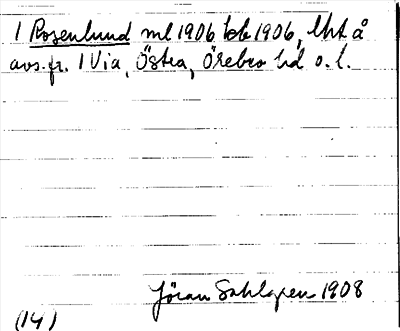 1 Rosenlund ml 1906 lob 1906, lht å
avs. fr. 1 Via, Östra, Örebro hd o. l.
Jöran Sahlgren 1908
(14)